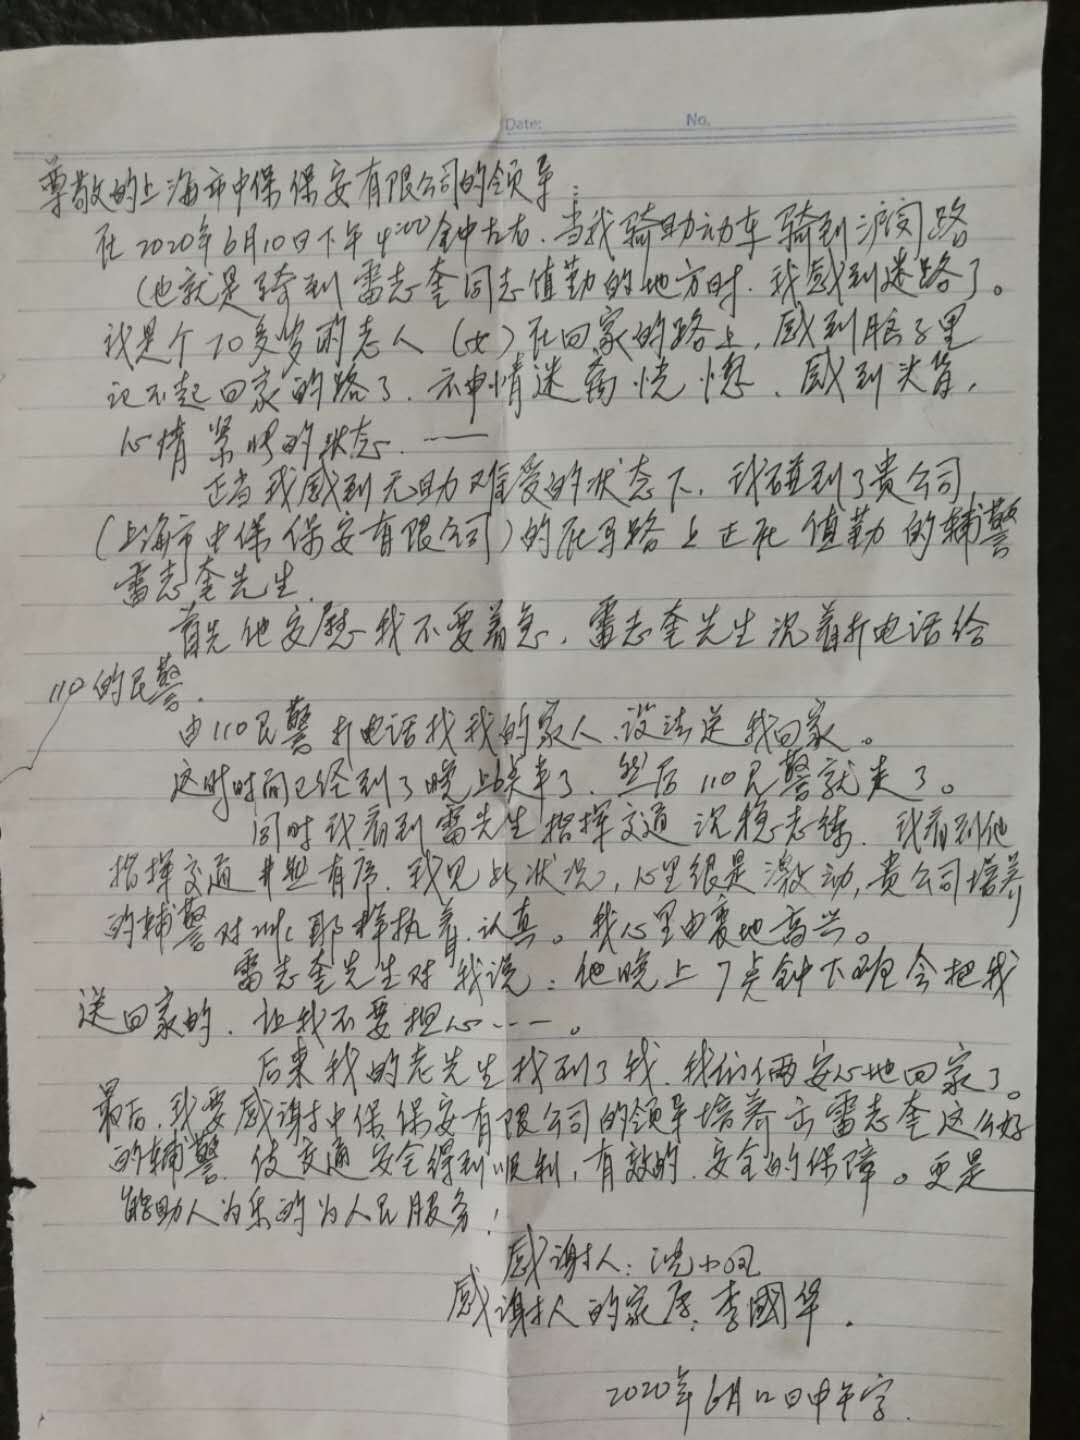 Date: No.
尊敬的上海市中保保安有限公司的领导:
在2020年6月10日下午4:00钟左右.当我骑助动车骑到沪闵路
(也就是骑到雷志奎同志值勤的地方时.我感到迷路了。
我是个70多岁的老人(女)在回家的路上,感到脑子里
记不起回家的路了.神情迷茫恍惚、感到头盲,
心情紧張的状态.——
正当我感到无助难受的状态下,我碰到了贵公司
(上海市中保保安有限公司)的在马路上正在值勤的辅警
雷志奎先生.
首先他安慰我不要着急,雷志奎先生沉着打电话给
110的民警.
由110民警打电话找我的家人.设法送我回家。
这时时间已经到了晚上6点半了.然后110民警就走了。
同时我看到雷先生指挥交通沉稳老练.我看到他
指挥交通井然有序.我见此状况,心里很是激动,贵公司培养
的辅警对工作那样执着,认真。我心里由衷地高兴。
雷志奎先生对我说:他晚上7点钟下班会把我
送回家的.让我不要担心——。
后来我的老先生找到了我.我们俩安心地回家了。
最后,我要感谢中保保安有限公司的领导培养出雷志奎这么好
的辅警.使交通安全得到顺利,有效的.安全的保障。更是
能助人为乐的为人民服务!
感谢人:沈小凤
感谢人的家属:李國华.
2020年6月12日中午字.